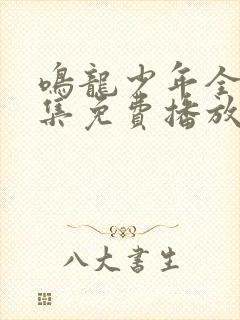 鳴龍少年全
集免費播放
八大書生